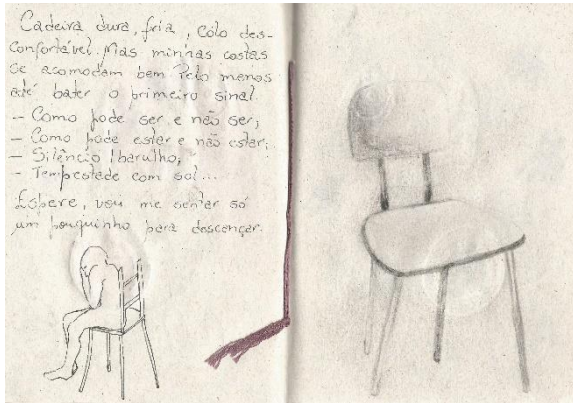 Cadeira dura, fria, colo des-
confortável. Mas minhas costas
se acomodam bem. Pelo menos
até bater o primeiro sinal.
- Como pode ser e não ser;
- Como pode estar e não estar;
- Silêncio / barulho;
- Tempestade com sol...
Espere, vou me sentar só
um pouquinho para descançar.